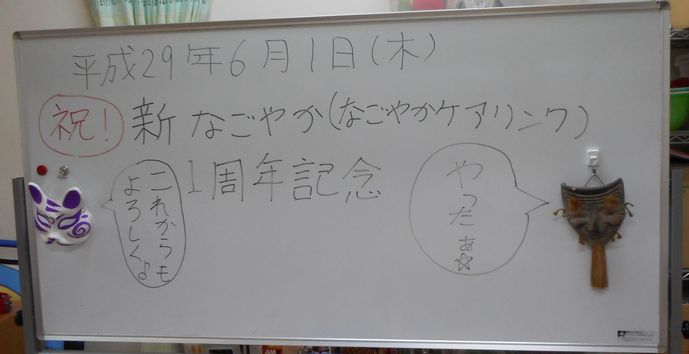 平成29年6月1日(木)
祝!
新なごやか(なごやかケアリンク)
1周年記念
これからも
よろしく♪
やったぁ☆